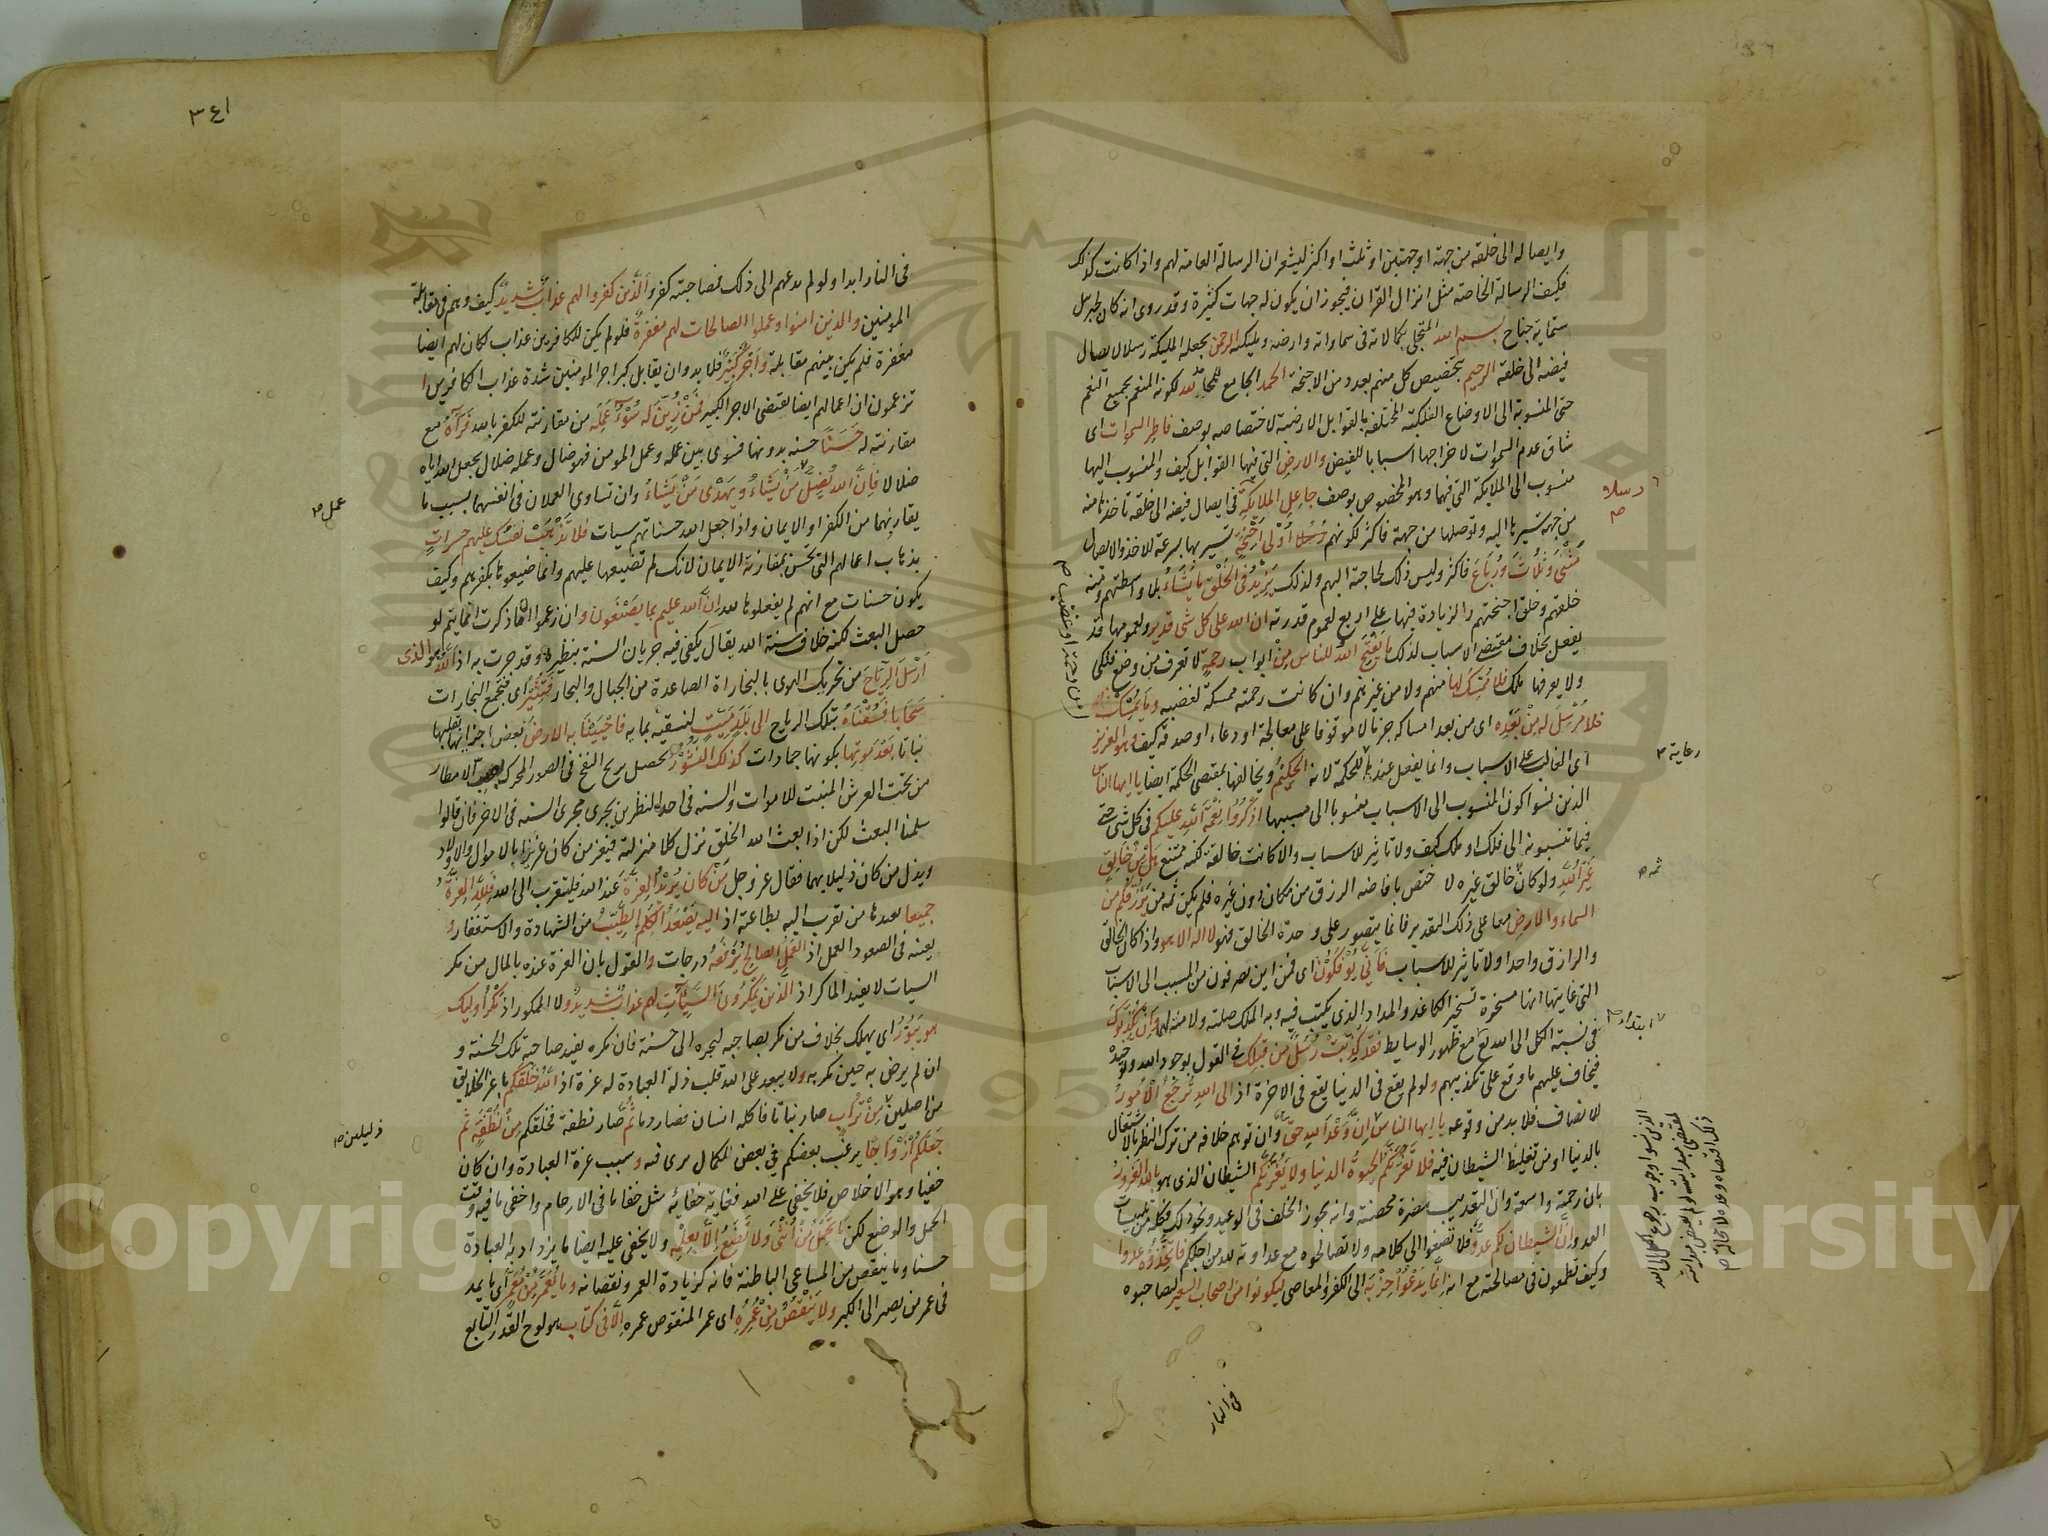 وايصاله الى خلقه من جهة او جهتين او ثلث او اكثر ليشعر ان الرسالة العامة لهم واذا كانت كذلك
فكيف الرسالة الخاصة مثل انزال القران فيجوز ان يكون له جهات كثيرة وقد روى انه كان لجبرئيل
ستماية جناح بسم الله المتجلى بكمالاته فى سماواته وارضه وملائكته الرحمن بجعله الملئكة رسلا لايصال
فيضه الى خلقه الرحيم بتخصيص كل منهم بعدد من الاجنحة الحمد الجامع للمحامد لله لكونه المنعم بجميع النعم
حتى المنسوبة الى الاوضاع الفلكية المختلفة بالقوابل الارضية لاختصاصه بوصف فاطر السموات اى
شاق عدم السموات لاخراجها اسبابا للفيض والارض التى فيها القوابل كيف والمنسوب اليها
منسوب الى الملايكة التى فيهما وهو المخصوص بوصف جاعل الملايكة فى ايصال فيضه الى خلقه تاخذ ما منه
من جهة تسير بها اليه وتوصلها من جهة فاكثر لكونهم رسلا اولى اجنحة تسير بها بسرعة للاخذ والايصال
مثنى وثلاث ورباع فاكثر وليس ذلك لحاجته اليهم ولذلك يزيد فى الخلق ما يشاء بلا واسطتهم ومنه
خلقهم وخلق اجنحتهم والزيادة فيها على اربع لعموم قدرته ان الله على كل شى قدير ولعمومها قد
يفعل بخلاف مقتضى الاسباب لذلك ما يفتح الله للناس من ابواب رحمة لا تعرف من وضع فلكى
ولا يعرفها ملك فلا ممسك لها منهم ولا من غيرهم وان كانت رحمته ممسكة لغضبه وما يمسك
فلا مرسل له من بعده اى من بعد امساكه جزما لا موقوفا على معالجة او دعاء او صدقة كيف وهو العزيز
اى الغالب على الاسباب وانما يفعل عندها للحكمة لانه الحكيم ويخالفها بمقتضى الحكمة ايضا يا ايها الناس
الذين نسوا كون المنسوب الى الاسباب منسوبا الى مسببها اذكروا نعمة الله عليكم فى كل شى حتى
فيما تنسبونه الى فلك او ملك كيف ولا تاثير للاسباب والا كانت خالقة لكنه ممتنع هل من خالق
غير الله ولو كان خالق غيره لا ختص بافاضه الرزق من مكان دون غيره فلم يكن ثمه من يرزقكم من
السماء والارض معا على ذلك التقدير فانما يتصور على وحدة الخالق فهو لا اله الا هو واذا كان الخالق
والرازق واحدا ولا تاثير للاسباب فانى تؤفكون اى فمن اين تصرفون من المسبب الى الاسباب
التى غايتها انها مسخرة تسخير الكاغد والمداد الذى يكتب فيه وبه الملك صلته ولا منة لهما وان يكذبوك
فى نسبة الكل الى الله تع مع ظهور الوسايط فقد كذبت رسل من قبلك فى القول بوجود الله وتوحيده
فيخاف عليهم ما وقع على تكذيبهم ولو لم يقع فى الدنيا يقع فى الاخرة اذ الى الله ترجع الامور
للانصاف فلا بد من وقوعه يا ايها الناس ان وعد الله حق وان توهم خلافه من ترك النظر بالاشتغال
بالدنيا او من تغليط الشيطان فيه فلا تغرنكم الحيوة الدنيا ولا يغرنكم الشيطان الذى هو بالله الغرور
بان رحمته واسعة وان التعذيب مضرة محضة وانه يجوز الخلف فى الوعيد ونحو ذلك فكله من تلبيسات
العدو ان الشيطان لكم عدو فلا تصغوا الى كلامه ولا تصالحوه مع عداوته لله من اجلكم فاتخذوه عدوا
وكيف تطمعون فى مصالحته مع انه انما يدعوا حزبه الى الكفر والمعاصى ليكونوا من اصحاب السعير لصاحبوه
رسلا
رعاية
ثمه
فى النار
٣٤١
فى النار ابدا ولو لم يدعهم الى ذلك فصاحبته كفر والذين كفروا لهم عذاب شديد كيف وهم فى مقابلة
المومنين والذين امنوا وعملوا الصالحات لهم مغفرة فلو لم يكن للكافرين عذاب لكان لهم ايضا
مغفرة فلم يكن بينهم مقابلة واجر كبير فلا بد وان يقابل كبر اجر المومنين شدة عذاب الكافرين ا
تزعمون ان اعمالهم ايضا تقتضى الاجر الكبير فمن زين له سوء عمله من مقارنته للكفر بالله فرآه مع
مقارنته له حسنا حسنه بدونها فسوى بين عمله وعمل المومن فهو ضال وعمله ضلال بجعل الله اياه
ضلالا فان الله يضل من يشاء ويهدى من يشاء وان تساوى العملان فى انفسهما بسبب ما
يقارنهما من الكفر او الايمان واذا جعل الله حسناتهم سيات فلا تذهب نفسك عليهم حسرات
بذهاب اعمالهم التى تحسن بمقارنة الايمان لانك لم تضيعها عليهم وانما ضيعوها بكفرهم وكيف
يكون حسنات مع انهم لم يفعلوها لله ان الله عليم بما يصنعون وان زعموا ان ما ذكرت انما يتم لو
حصل البعث لكنه خلاف سنة الله يقال يكفى فيه جريان السنة بنظيره وقد جرت به اذ الله هو الذى
ارسل الرياح من تحريك الهوى بالبخارات الصاعدة من الجبال والبحار فتثير اى فتجمع البخارات
سحابا فسقناه بتلك الرياح الى بلد ميت لنسقيه بمايه فاحيينا به الارض بعض اجزائها بقلبها
نباتا بعد موتها بكونها جمادات كذلك النشور يحصل بريح النفخ فى الصور المحرك لسحب الامطار
من تحت العرش المنبت للاموات والسنه فى احد النظيرين يجرى مجرى السنه فى الاخر فان قالوا
سلمنا البعث لكن اذا بعث الله الخلق نزل كلا منزلته فيعز من كان عزيزا بالاموال والاولاد
ويذل من كان ذليلا بهما فقال عز وجل من كان يريد العزة عند الله فليتقرب الى الله فلله العزة
جميعا يعدها من تقرب اليه بطاعته اذ اليه يصعد الكلم الطيب من الشهادة والاستغفار و
يعينه فى الصعود العمل اذ العمل الصالح يرفعه درجات والقول بان العزة عنده بالمال من مكر
السيات لا يفيد الماكر اذ الذين يمكرون السيئات لهم عذاب شديد ولا الممكور اذ مكر اوليك
هو يبور اى يهلك بخلاف من مكر بصاحبه ليجره الى حسنة فان مكره يفيد صاحبه تلك الحسنة و
ان لم يرض به حين مكر به ولا يبعد على الله قلب ذلة العبادة له عزة اذ الله خلقكم يا عز الخلايق
من اصلين من تراب صار نباتا فاكله انسان فصار دما ثم صار نطفة فخلقكم من نطفة ثم
جعلكم ازواجا يرغب بعضكم فى بعض لكمال يرى فيه وسبب عزة العبادة وان كان
خفيا وهو الاخلاص فلا يخفى على الله فغاية خفائه مثل خفاء ما فى الارحام واخفى ما فيه وقت
الحمل والوضع لكن ما تحمل من انثى ولا تضع الا بعلمه ولا يخفى عليه ايضا ما يزداد به العبادة
حسنا وما ينقص من المساعى الباطنة فانه كزيادة العمر ونقصانه وما يعمر من معمر اى ما يمد
فى عمر من يصير الى الكبر ولا ينقص من عمره اى عمر المنقوص عمره الا فى كتاب هو لوح القدر التابع
عمل
ذليلين